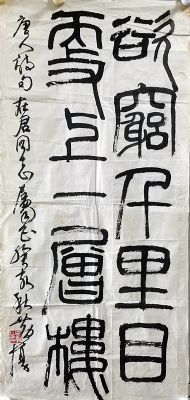 欲窮千里目
更上一層樓
唐人詩句 君同志